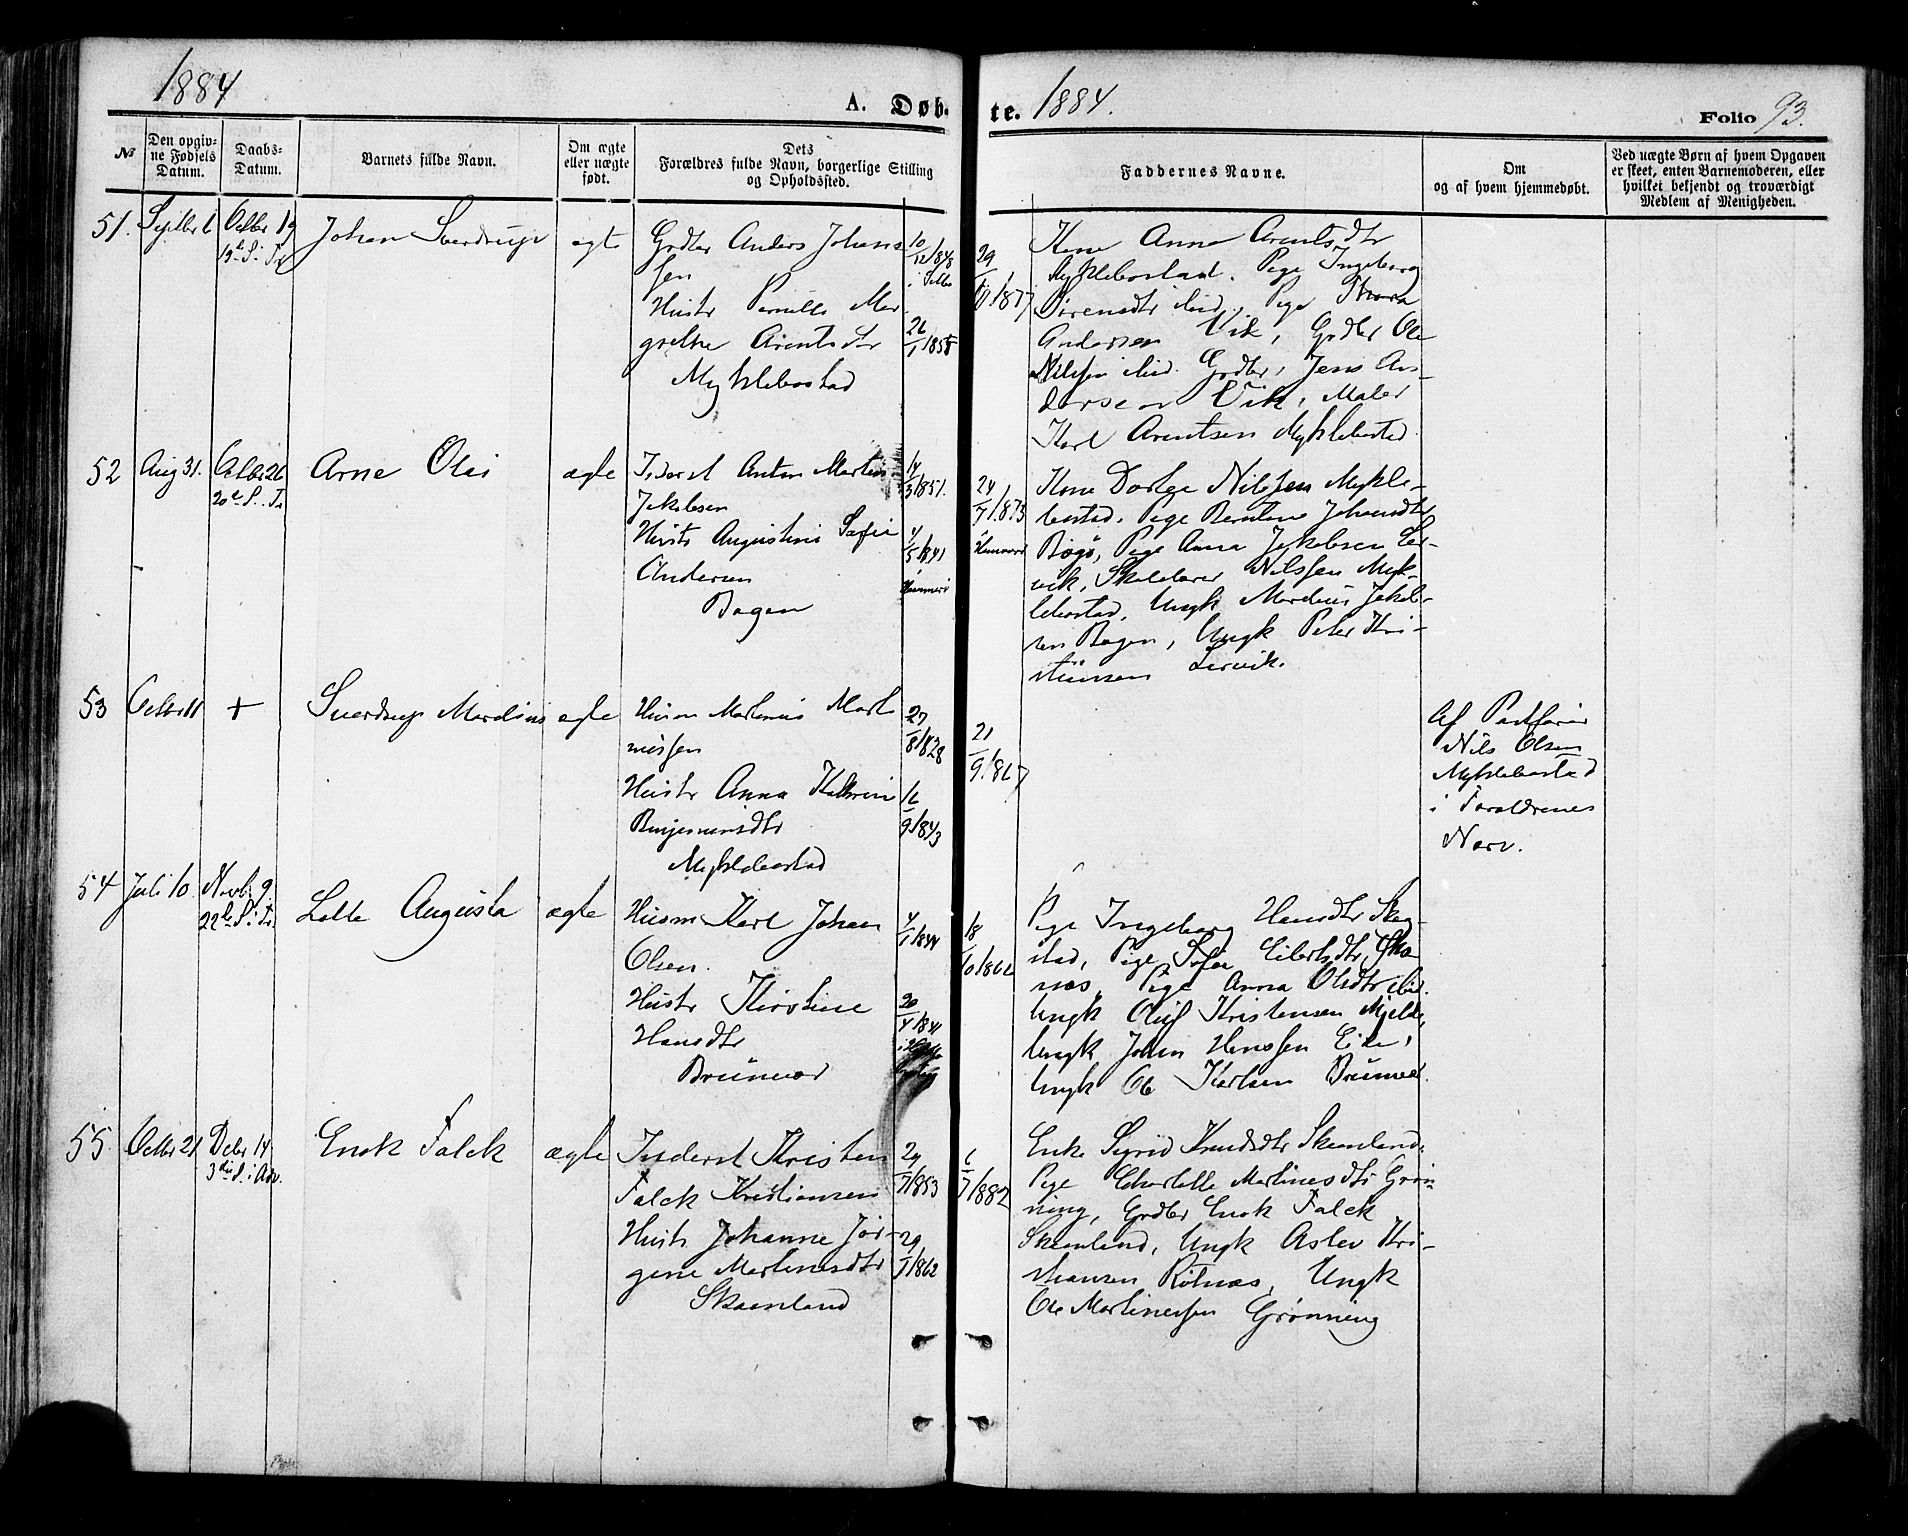 1884
A. Døb-
te. 1884.
Folio 93.
№
Den opgiv-
ne Fødsels
Datum.
Daabs-
Datum.
Barnets fulde Navn.
Om ægte
eller uægte
født.
Dets
Forældres fulde Navn, borgerlige Stilling
og Opholdsted.
Faddernes Navne.
Om
og af hvem hjemmedøbt.
Ved uægte Børn af hvem Opgaven
er skeet, enten Barnemoderen, eller
hvilket bekjendt og troværdigt
Medlem af Menigheden.
51.
Octbr 19
19de S. i Tr
Johan Sverdrup
ægte
Grdbr Anders Johans
sen
Hustr Pernille Mar
grethe Arentsdtr
Myklebostad
10/12 1848
26/1 1855
29/ 1877
Kone Anna Arentsdtr
Myklebostad. Pige Ingeborg
Sørensdtr ibid., Pige Thora
Andersen Vik, Grdbr Ole
Nilssen ibid. Grdbr, Jens An-
dersen Vik, Maler
Karl Arentsen Myklebostad
52
Aug 31.
Octbr 26
20de S. i Tr
Arne Olai
ægte
Inderst Anton Martin
Jakobsen
Hustr Augustine Sofie
Andersen
Bogen
14/3 1851.
4/5 1841
Hammerø
24/7 1873
Hammerø
Kone Dortea Nilssen Mykle-
bostad, Pige Berntine Johansdtr
Bogø, Pige Anna Jakobsen Ler-
vik, Skolelærer Nilssen Myk-
lebostad, Ungk Mardius Jakob-
sen Bogen, Ungk Peter Kri-
stiansen Lervik.
53
Octbr 11
+
Sverdrup Mardius
ægte
Husm Martinus Mart
nussen
Hustr Anna Kathrine
Benjaminsdtr
Myklebostad
27/8 1828
16/9 1843
21/9 1867
Af Postfører
Nils Olsen
Myklebostad
i Forældrenes
Nærv.
54
Juli 10
Novbr 9
22de S. i Tr.
Lotte Augusta
ægte
Husm Karl Johan
Olsen.
Hustr Kirstine
Hansdtr
Brunvær
4/1 1844
20/4 1841
18/10 1862
Pige Ingeborg Hansdtr Skog-
stad, Pige Sofie Eilertsdtr
nes, Pige Anna Olsdtr ibid.
Ungk Oluf Kristensen Mjelde,
Ungk Johan Hanssen
Ungk Ole Karlsen Brunvær.
55
Octbr 21
Decbr 14
3die S. i Adv.
Enok Falck
ægte
Inderst Kristen
Falck Kristiansen
Hustr Johanne Jør-
gine Martinesdtr
Skarnland
29/7 1853
29/1 1862
6/7 1882
Enke Sigrid Knudsdtr Skarnland,
Pige Charlotte Martinesdtr Grøn-
ning, Grdbr Enok Falck
Skarnland, Ungk Aslev Kri-
stiansen Rotnæs, Ungk
Ole Martinessen Grønning